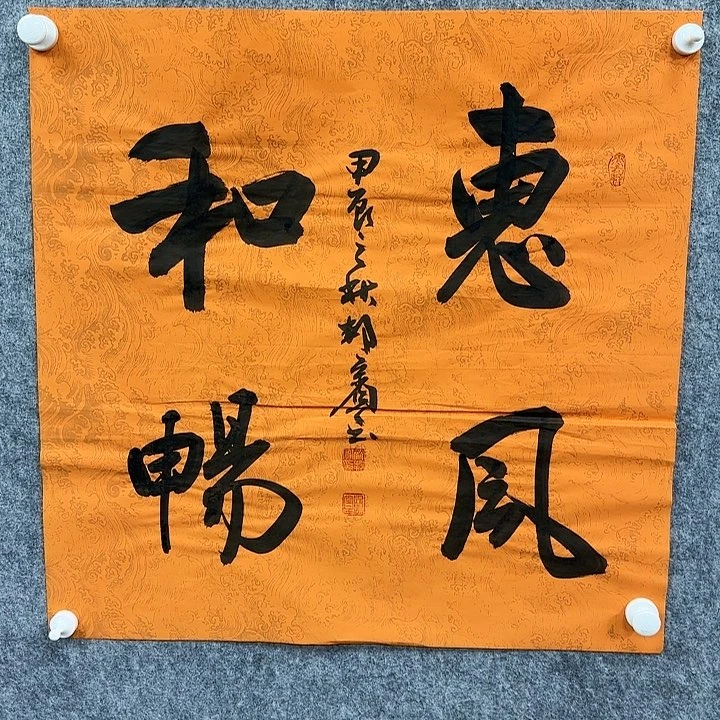 惠風
和暢
甲辰之秋